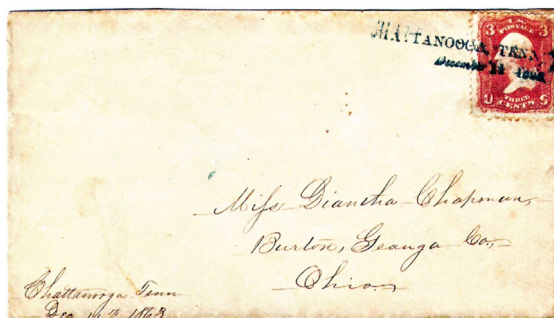 CHATTANOOGA, TENN.
December 14 1863
3 U.S. POSTAGE 3
U THREE CENTS S
Miss Diantha Chapman,
Burton, Geauga Co,
Ohio
Chattanooga Tenn
Dec 14th 1863